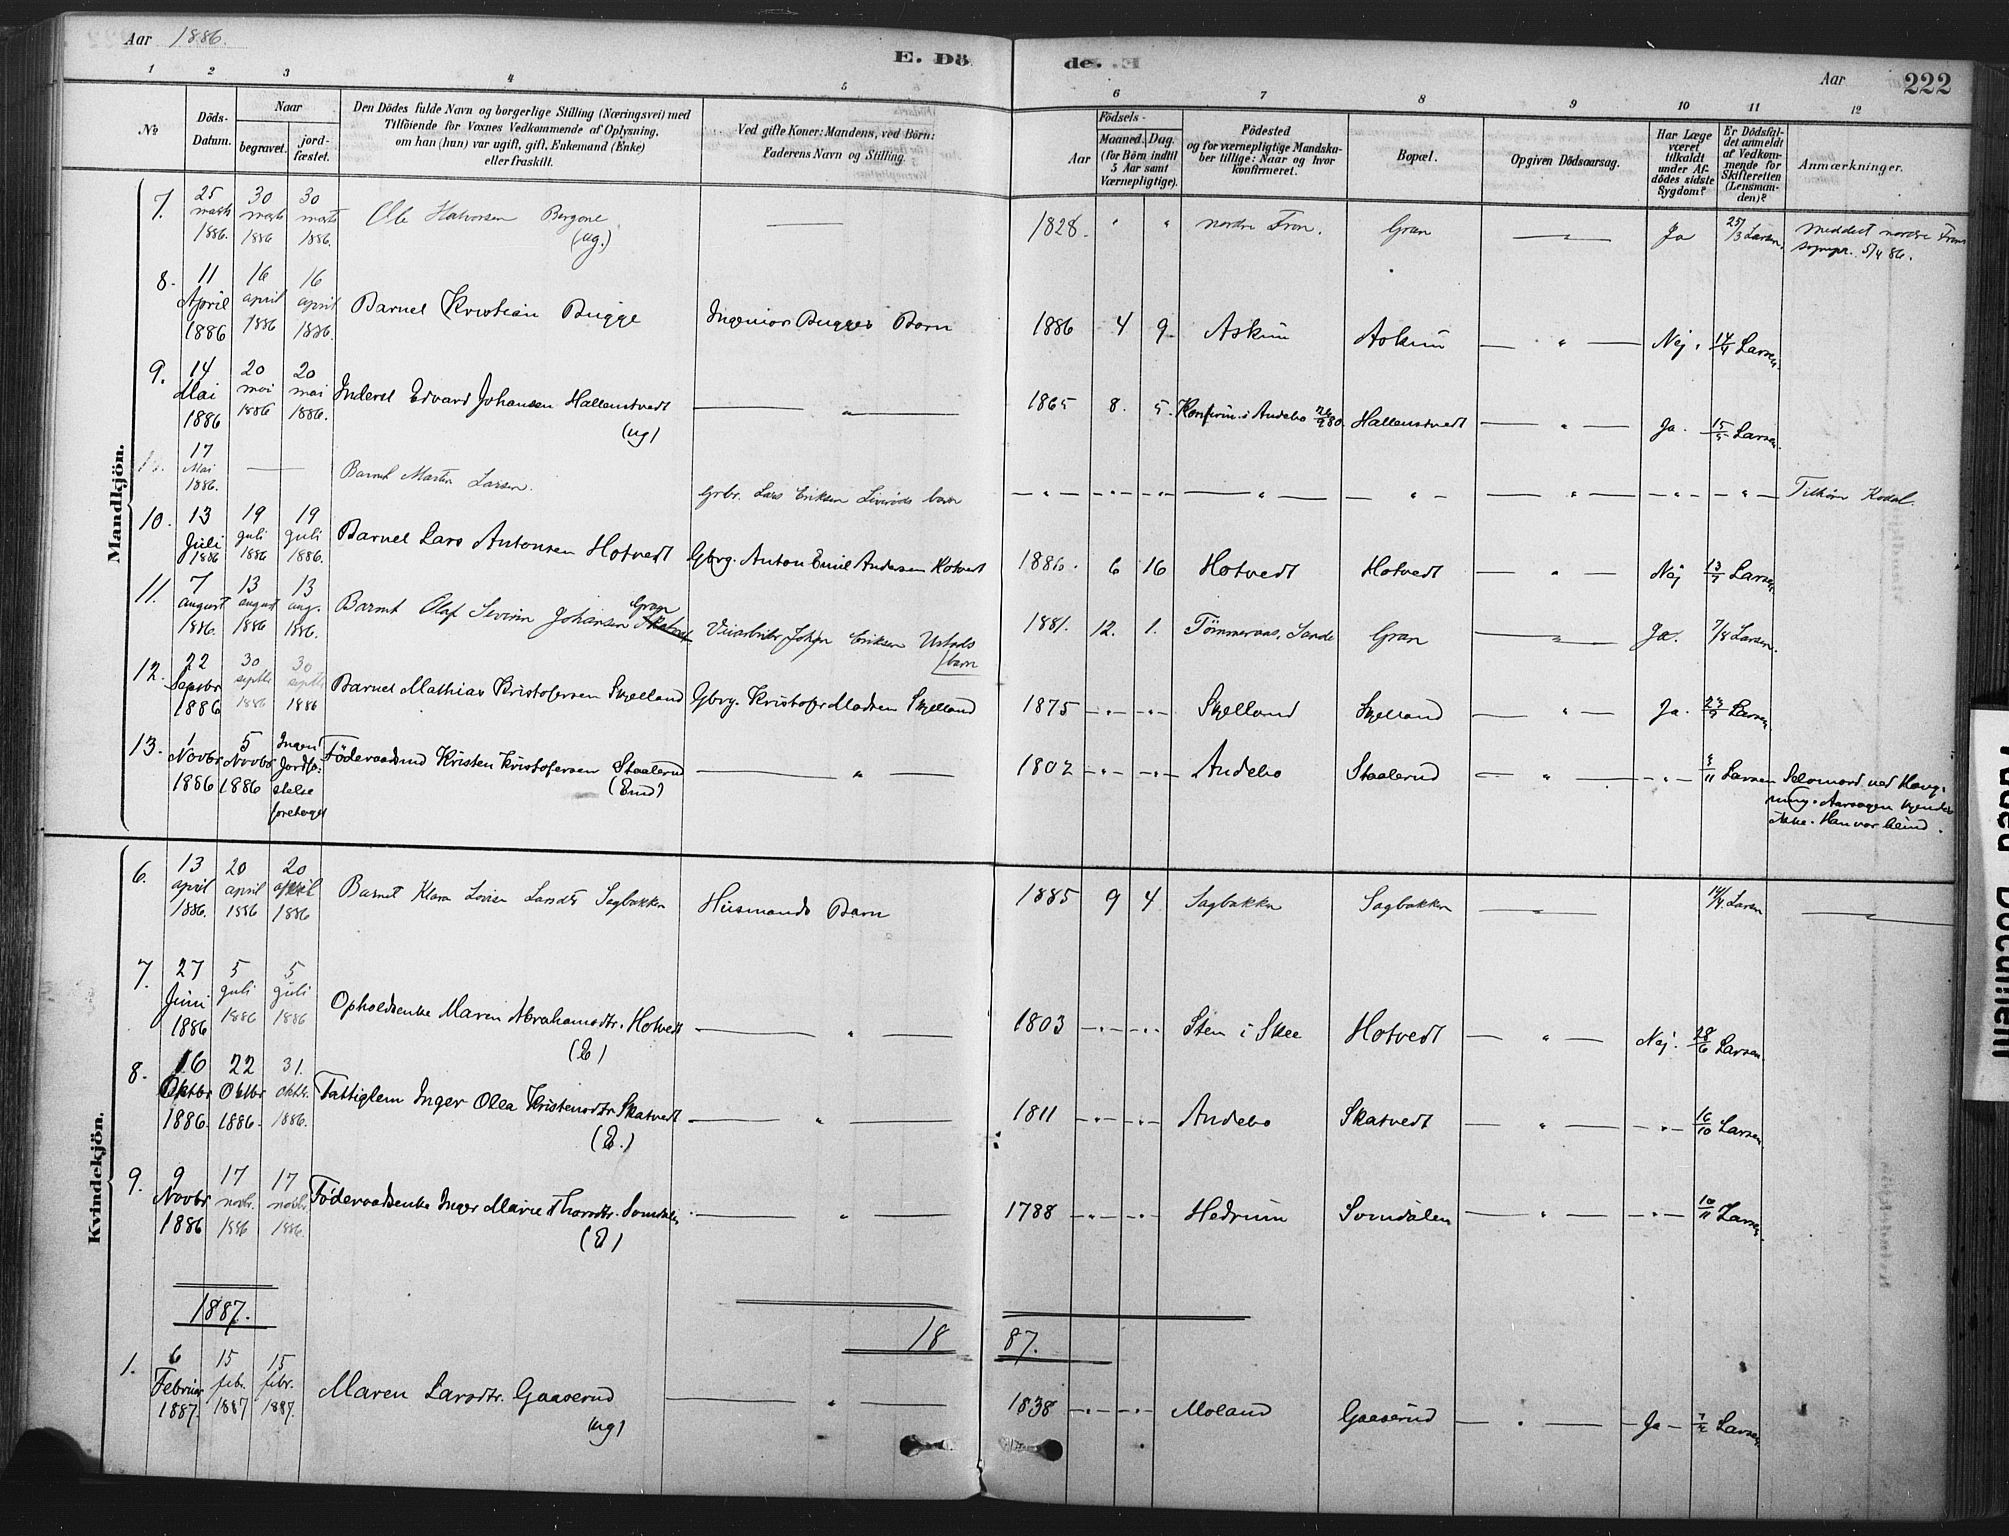 Aar 1886.
E. Dö
de.
Aar
222
1 2 3 4 5 6 7 8 9 10 11 12
№
Döds-
Datum.
Naar
begravet.
jord-
fæstet.
Den Dödes fulde Navn og borgerlige Stilling (Næringsvei) med
Tilföiende for Voxnes Vedkommende af Oplysning,
om han (hun) var ugift, gift, Enkemand (Enke)
eller fraskilt.
Ved gifte Koner: Mandens, ved Börn:
Faderens Navn og Stilling.
Födsels-
Aar
Maaned. Dag.
(for Börn indtil
5 Aar samt
Værnepligtige).
Födested
og for værnepligtige Mandska-
ber tillige: Naar og hvor
konfirmeret.
Bopæl.
Opgiven Dödsaarsag.
Har Læge
været
tilkaldt
under Af-
dödes sidste
Sygdom?
Er Dödsfal-
det anmeldt
af Vedkom-
mende for
Skifteretten
(Lensman-
den)?
Anmærkninger.
Mandkjön.
7. 25 marts 1886. 30 marts 1886 30 marts 1886. Ole Halvorsen Bergene (ug.) — 1828. " " nordre Fron. Gran — Ja 25/3 Larsen. Meddelt nordre Fron
sognepr. 5/4 86.
8. 11 April 1886 16 april 1886 16 april 1886. Barnet Kristian Bugge Ingeniør Bugges Barn 1886 4 9. Askim Askim — " — Nej. 14/4 Larsen.
9. 14 Mai 1886 20 mai 1886 20 mai 1886. Inderst Edvard Johansen Hallenstvedt (ug) — " — 1865 8. 5. Konfirm. i Andebo 26/9 80. Hallenstvedt — " — Ja. 15/5 Larsen.
17 Mai 1886. — Barnet Martin Larsen. Grbr. Lars Eriksen barn — " — — " — — " — — " — — " — — " — — " — — " — Tilhører Kodal.
10. 13 Juli 1886 19 juli 1886 19 juli 1886. Barnet Lars Antonsen Hotvedt Gbrg. Anton Emil Andersen Hotvedt 1886. 6 16 Hotvedt Hotvedt — " — Nej 13/7 Larsen
11. 7 august 1886. 13 august 1886 13 aug. 1886. Barnet Olaf Severin Johansen Gran Skatvedt Johan Eriksen
barn 1881. 12. 1. Tömmeraas, Sande Gran — " — Ja. 7/8 Larsen.
12. 22 Septbr 1886 30 septbr 1886 30 septbr 1886 Barnet Mathias Kristofersen Skjelland Gbrg. Kristofer Madsen Skjelland 1875 — " — — " — Skjelland Skjelland — " — Ja. 23/9 Larsen
13. 1 Novbr 1886 5 Novbr 1886 Ingen Jordfæ-
stelse
foretaget Föderaadsmd Kristen Kristofersen Staalerud (Emd) — " — 1802 — " — — " — Andebo Staalerud — " — — " — 3/11 Larsen Selvmord ved Hæng-
ning. Aarsagen kjendes
ikke. Han var blind.
Kvindekjön.
6. 13 april 1886. 20 april 1886 20 april 1886 Barnet Klara Lovise Larsdtr Sagbakken Husmands Barn 1885 9 4 Sagbakken Sagbakken — " — 14/4. Larsen — " —
7. 27 Juni 1886 5 juli 1886 5 juli 1886 Opholdsenke Maren Abrahamsdtr. Hotvedt (E) — " — 1803 — " — — " — Sten i Skee Hotvedt — " — Nej. 28/6 Larsen.
8. 16 Oktbr 1886. 22 Oktbr 1886. 31. oktbr. 1886. Fattiglem Inger Olea Kristensdtr Skatvedt (E.) — " — 1811 — " — — " — Andebo Skatvedt — " — — " — 16/10 Larsen
9. 9 Novbr 1886 17 novbr. 1886 17 novbr. 1886. Föderaadsenke Inger Marie Thorsdtr. Somdalen (E) — " — 1788 — " — — " — Hedrum Somdalen — " — — " — 10/11 Larsen.
1887.
18 87.
1. 6 Februar 1887. 15 febr. 1887 15 febr. 1887. Maren Larsdtr. Gaaserud (ug) — " — 1838 — " — — " — Moland Gaaserud — " — — Ja — 7/2 Larsen